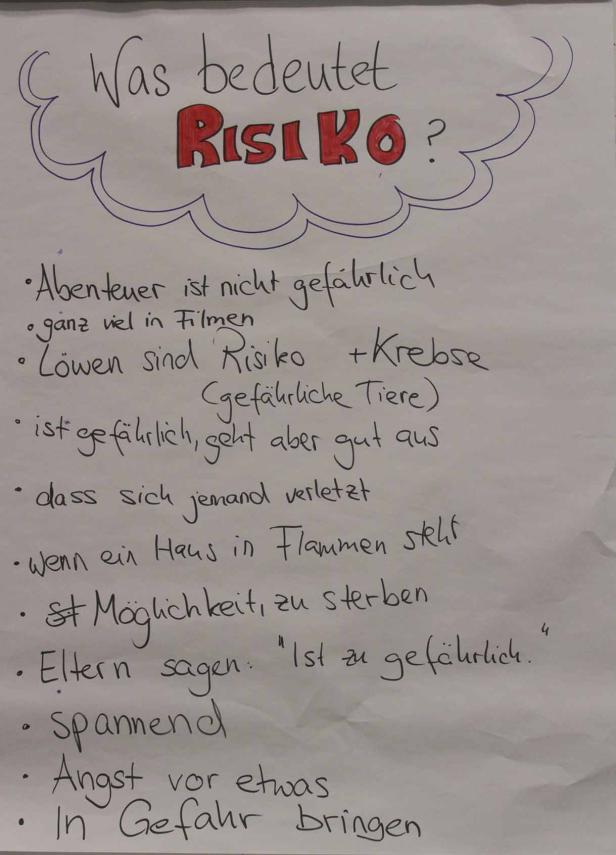 Was bedeutet
RISIKO?
• Abenteuer ist nicht gefährlich
• ganz viel in Filmen
• Löwen sind Risiko + Krebse
(gefährliche Tiere)
• ist gefährlich, geht aber gut aus
• dass sich jemand verletzt
• wenn ein Haus in Flammen steht
• Möglichkeit, zu sterben
• Eltern sagen: "Ist zu gefährlich."
• spannend
• Angst vor etwas
• In Gefahr bringen